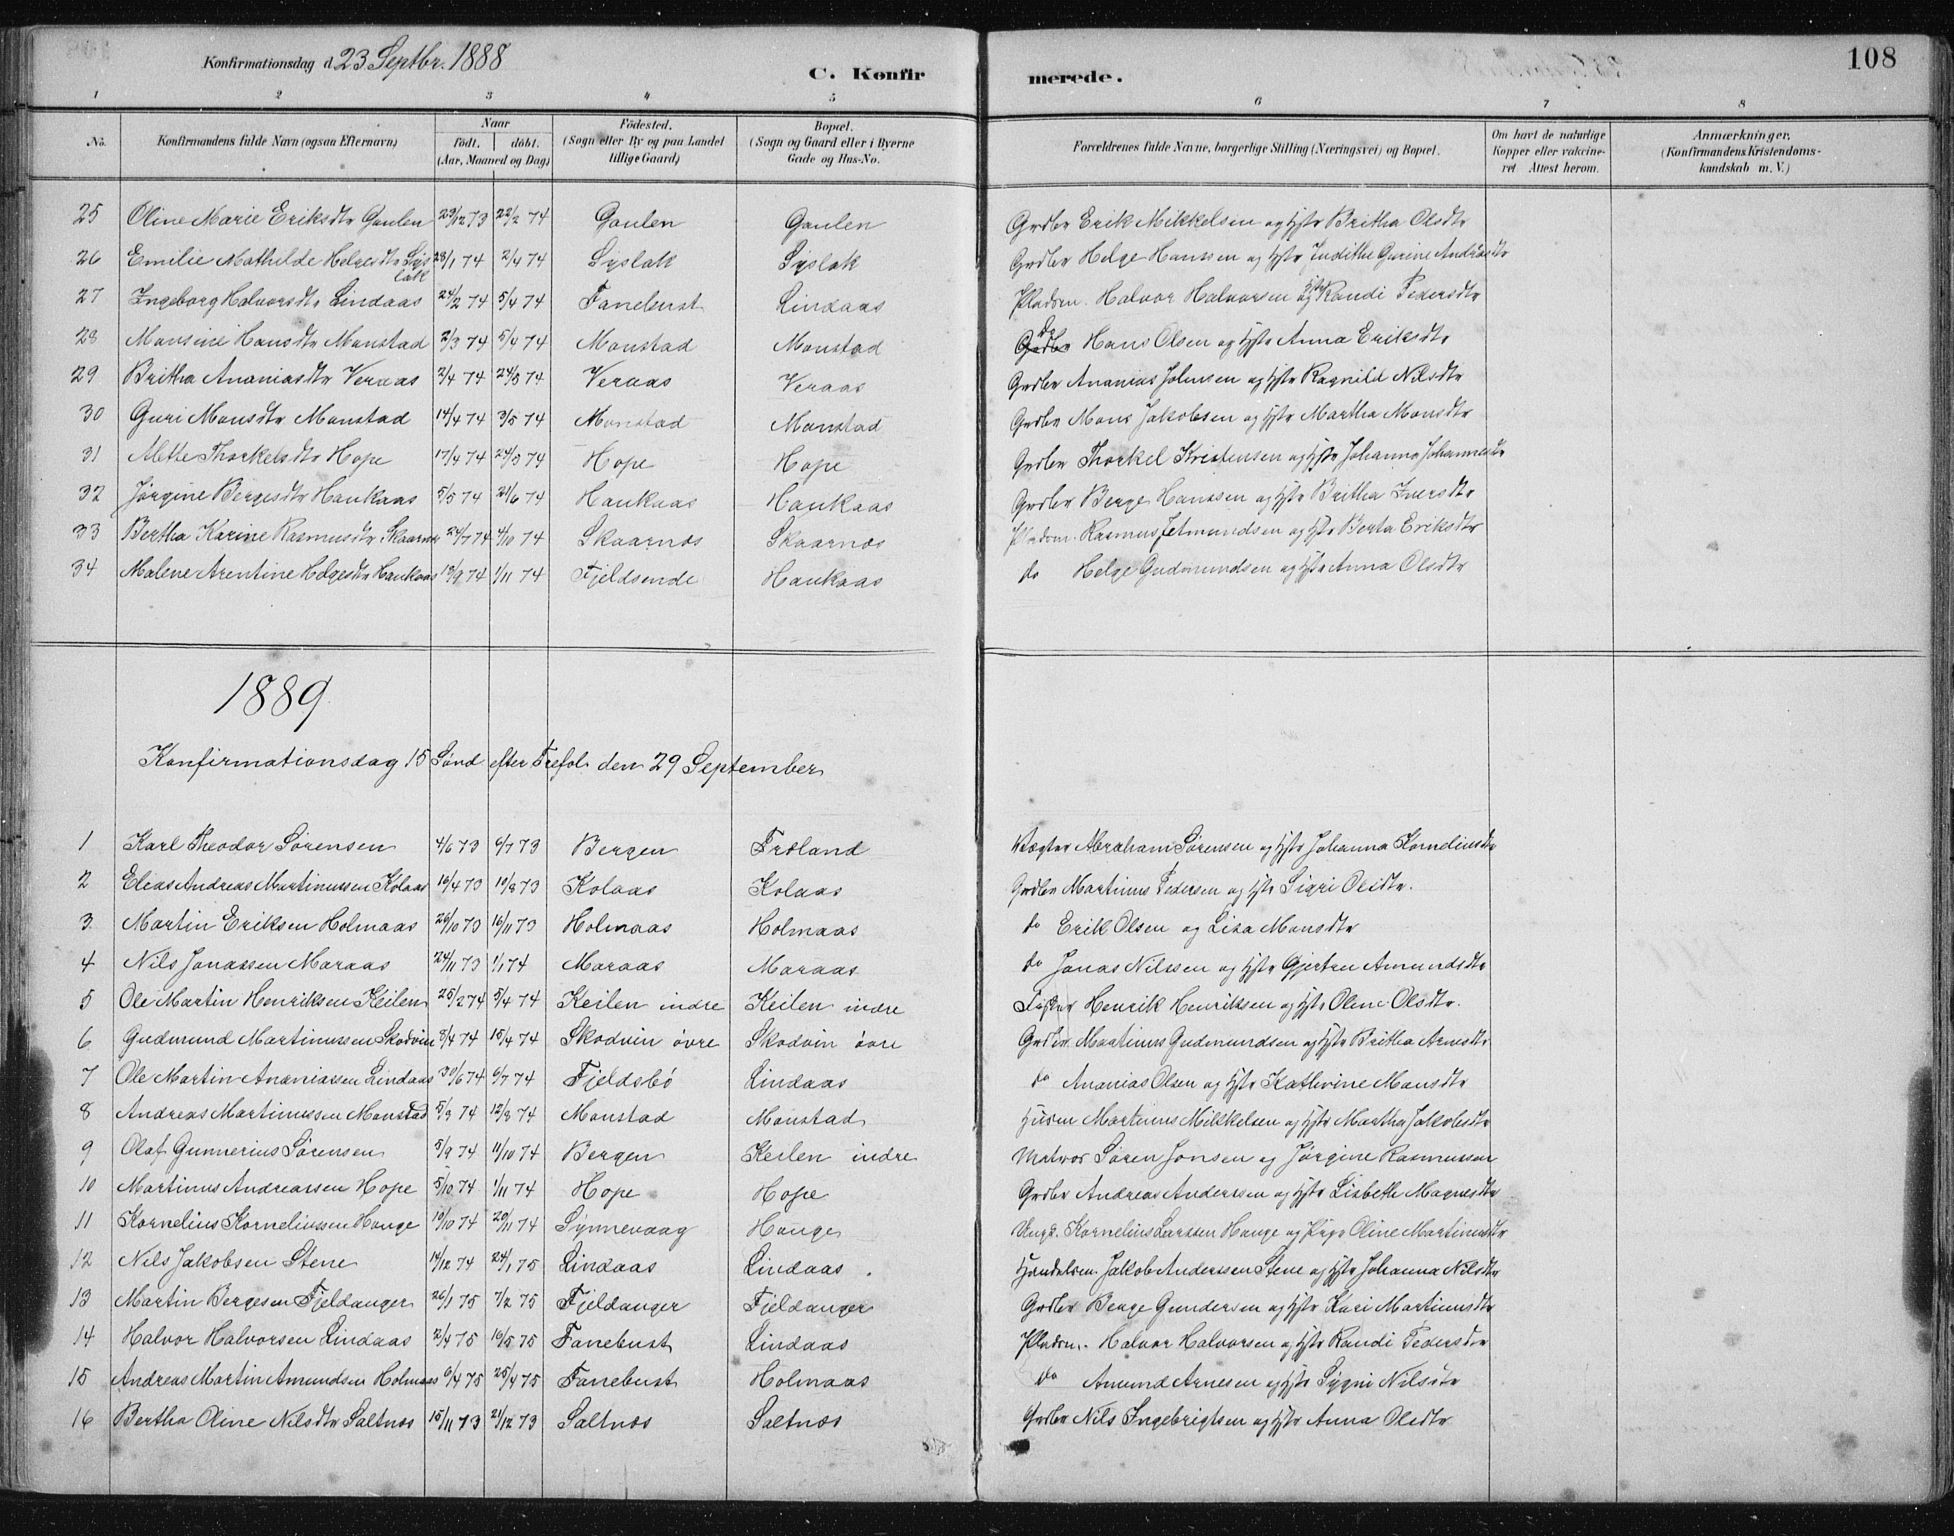 Konfirmationsdag d. 23 Septbr. 1888 C. Konfirmerede. 108
1 2 3 4 5 6 7 8
No. Konfirmandens fulde Navn (ogsaa Efternavn) Naar født. døbt. (Aar, Maaned og Dag) Fødested. (Sogn eller By og paa Landet tillige Gaard) Bopæl. (Sogn og Gaard eller i Byerne Gade og Hus-No. Forældrenes fulde Navne, borgerlige Stilling (Næringsvei) og Bopæl. Om havt de naturlige Kopper eller vakcineret Attest herom. Anmærkninger. (Konfirmandens Kristendomskundskab m. V.)
25 Oline Marie Eriksdtr Gaulen 29/12 73 22/2 74 Gaulen Gaulen Grdbr Erik Mikkelsen og Hstr Britha Olsdtr
26 Emilie Mathilde Helgesdtr Syslak 28/1 74 2/4 74 Syslak Syslak Grdbr Helge Hanssen og Hstr Judithe Gurine Andrasdtr
27 Ingeborg Halvorsdtr Lindaas 24/2 74 5/4 74 Fanebust Lindaas Pladsm. Halvor Halvorsen og Hstr Randi Pedersdtr
28 Monsine Hansdtr Monstad 2/3 74 5/4 74 Monstad Monstad Do Hans Olsen og Hstr Anna Eriksdtr
29 Britha Ananiasdtr Veraas 2/4 74 24/5 74 Veraas Veraas Grdbr Ananias Johnsen og Hstr Ragnild Nilsdtr
30 Guri Monsdtr Monstad 14/4 74 3/5 74 Monstad Monstad Grdbr Mons Jakobsen og Hstr Martha Monsdtr
31 Mette Thorkelsdtr Hope 17/4 74 24/5 74 Hope Hope Grdbr Thorkel Kristensen og Hstr Johanna Johannesdtr
32 Jørgine Bergesdtr Haukaas 5/5 74 21/6 74 Haukaas Haukaas Grdbr Berge Hanssen og Hstr Britha Iversdtr
33 Bertha Karine Rasmusdtr Skaarnæs 24/7 74 4/10 74 Skaarnæs Skaarnæs Pladsm. Rasmus Jetmundsen og Hstr Berta Eriksdtr
34 Malene Arentine Helgesdtr Haukaas 13/9 74 1/11 74 Fjeldsende Haukaas do Helge Gudmundsen og Hstr Anna Olsdtr
1889
Konfirmationsdag 15 Sønd efter Trefol. den 29 September
1 Karl Theodor Sørensen 4/6 73 6/7 73 Bergen Frøland Vægter Abraham Sørensen og Hstr Johanna Korneliusdtr
2 Elias Andreas Martinussen Kolaas 16/4 73 10/8 73 Kolaas Kolaas Grdbr Martinus Pedersen og Hstr Sigri Olsdtr.
3 Martin Eriksen Holmaas 26/10 73 16/11 73 Holmaas Holmaas do Erik Olsen og Lisa Monsdtr
4 Nils Jonassen Maraas 24/11 73 1/1 74 Maraas Maraas do Jonas Nilssen og Hstr Gjertru Amundsdtr
5 Ole Martin Henriksen Keilen 25/2 74 5/4 74 Keilen indre Keilen indre Henrik Henriksen og Hstr Oline Olsdtr.
6 Gudmund Martinussen Skodvin 3/4 74 15/4 74 Skodvin øvre Skodvin øvre Grdbr Martinus Gudmundsen og Hstr Britha Arnesdtr
7 Ole Martin Ananiassen Lindaas 30/6 74 6/7 74 Fjeldsbø Lindaas do Ananias Olsen og Hstr Kathrine Monsdtr
8 Andreas Martinussen Monstad 5/8 74 12/8 74 Monstad Monstad Husm Martinus Mikkelsen og Hstr Martha Jakobsdtr
9 Olaf Gunnerius Sørensen 5/9 74 11/10 74 Bergen Keilen indre Matros Søren Jonsen og Jørgine Rasmussen
10 Martinus Andreassen Hope 5/10 74 1/11 74 Hope Hope Grdbr Andreas Anderssen og Hstr Lisbeth Magnesdtr
11 Kornelius Korneliussen Hauge 10/10 74 20/11 74 Synnevaag Hauge Ungk. Kornelius Larssen Hauge og Pige Oline Martinusdtr
12 Nils Jakobsen Stene 14/12 74 24/1 75 Lindaas Lindaas. Handelsm. Jakob Anderssen Stene og Hstr Johanna Nilsdtr
13 Martin Bergesen Fjeldanger 26/1 75 7/2 75 Fjeldanger Fjeldanger Grdbr Berge Gundersen og Hstr Kari Martinusdtr
14 Halvor Halvorsen Lindaas 2/4 75 16/5 75 Fanebust Lindaas Pladsm. Halvor Halvorsen og Hstr Randi Pedersdtr
15 Andreas Martin Amundsen Holmaas 6/4 75 25/4 75 Fanebust Holmaas do Amund Arnesen og Hstr Sygni Nilsdtr
16 Bertha Oline Nilsdtr Saltnæs 15/11 73 21/12 73 Saltnæs Saltnæs Grdbr Nils Ingebrigtsen og Hstr Anna Olsdtr